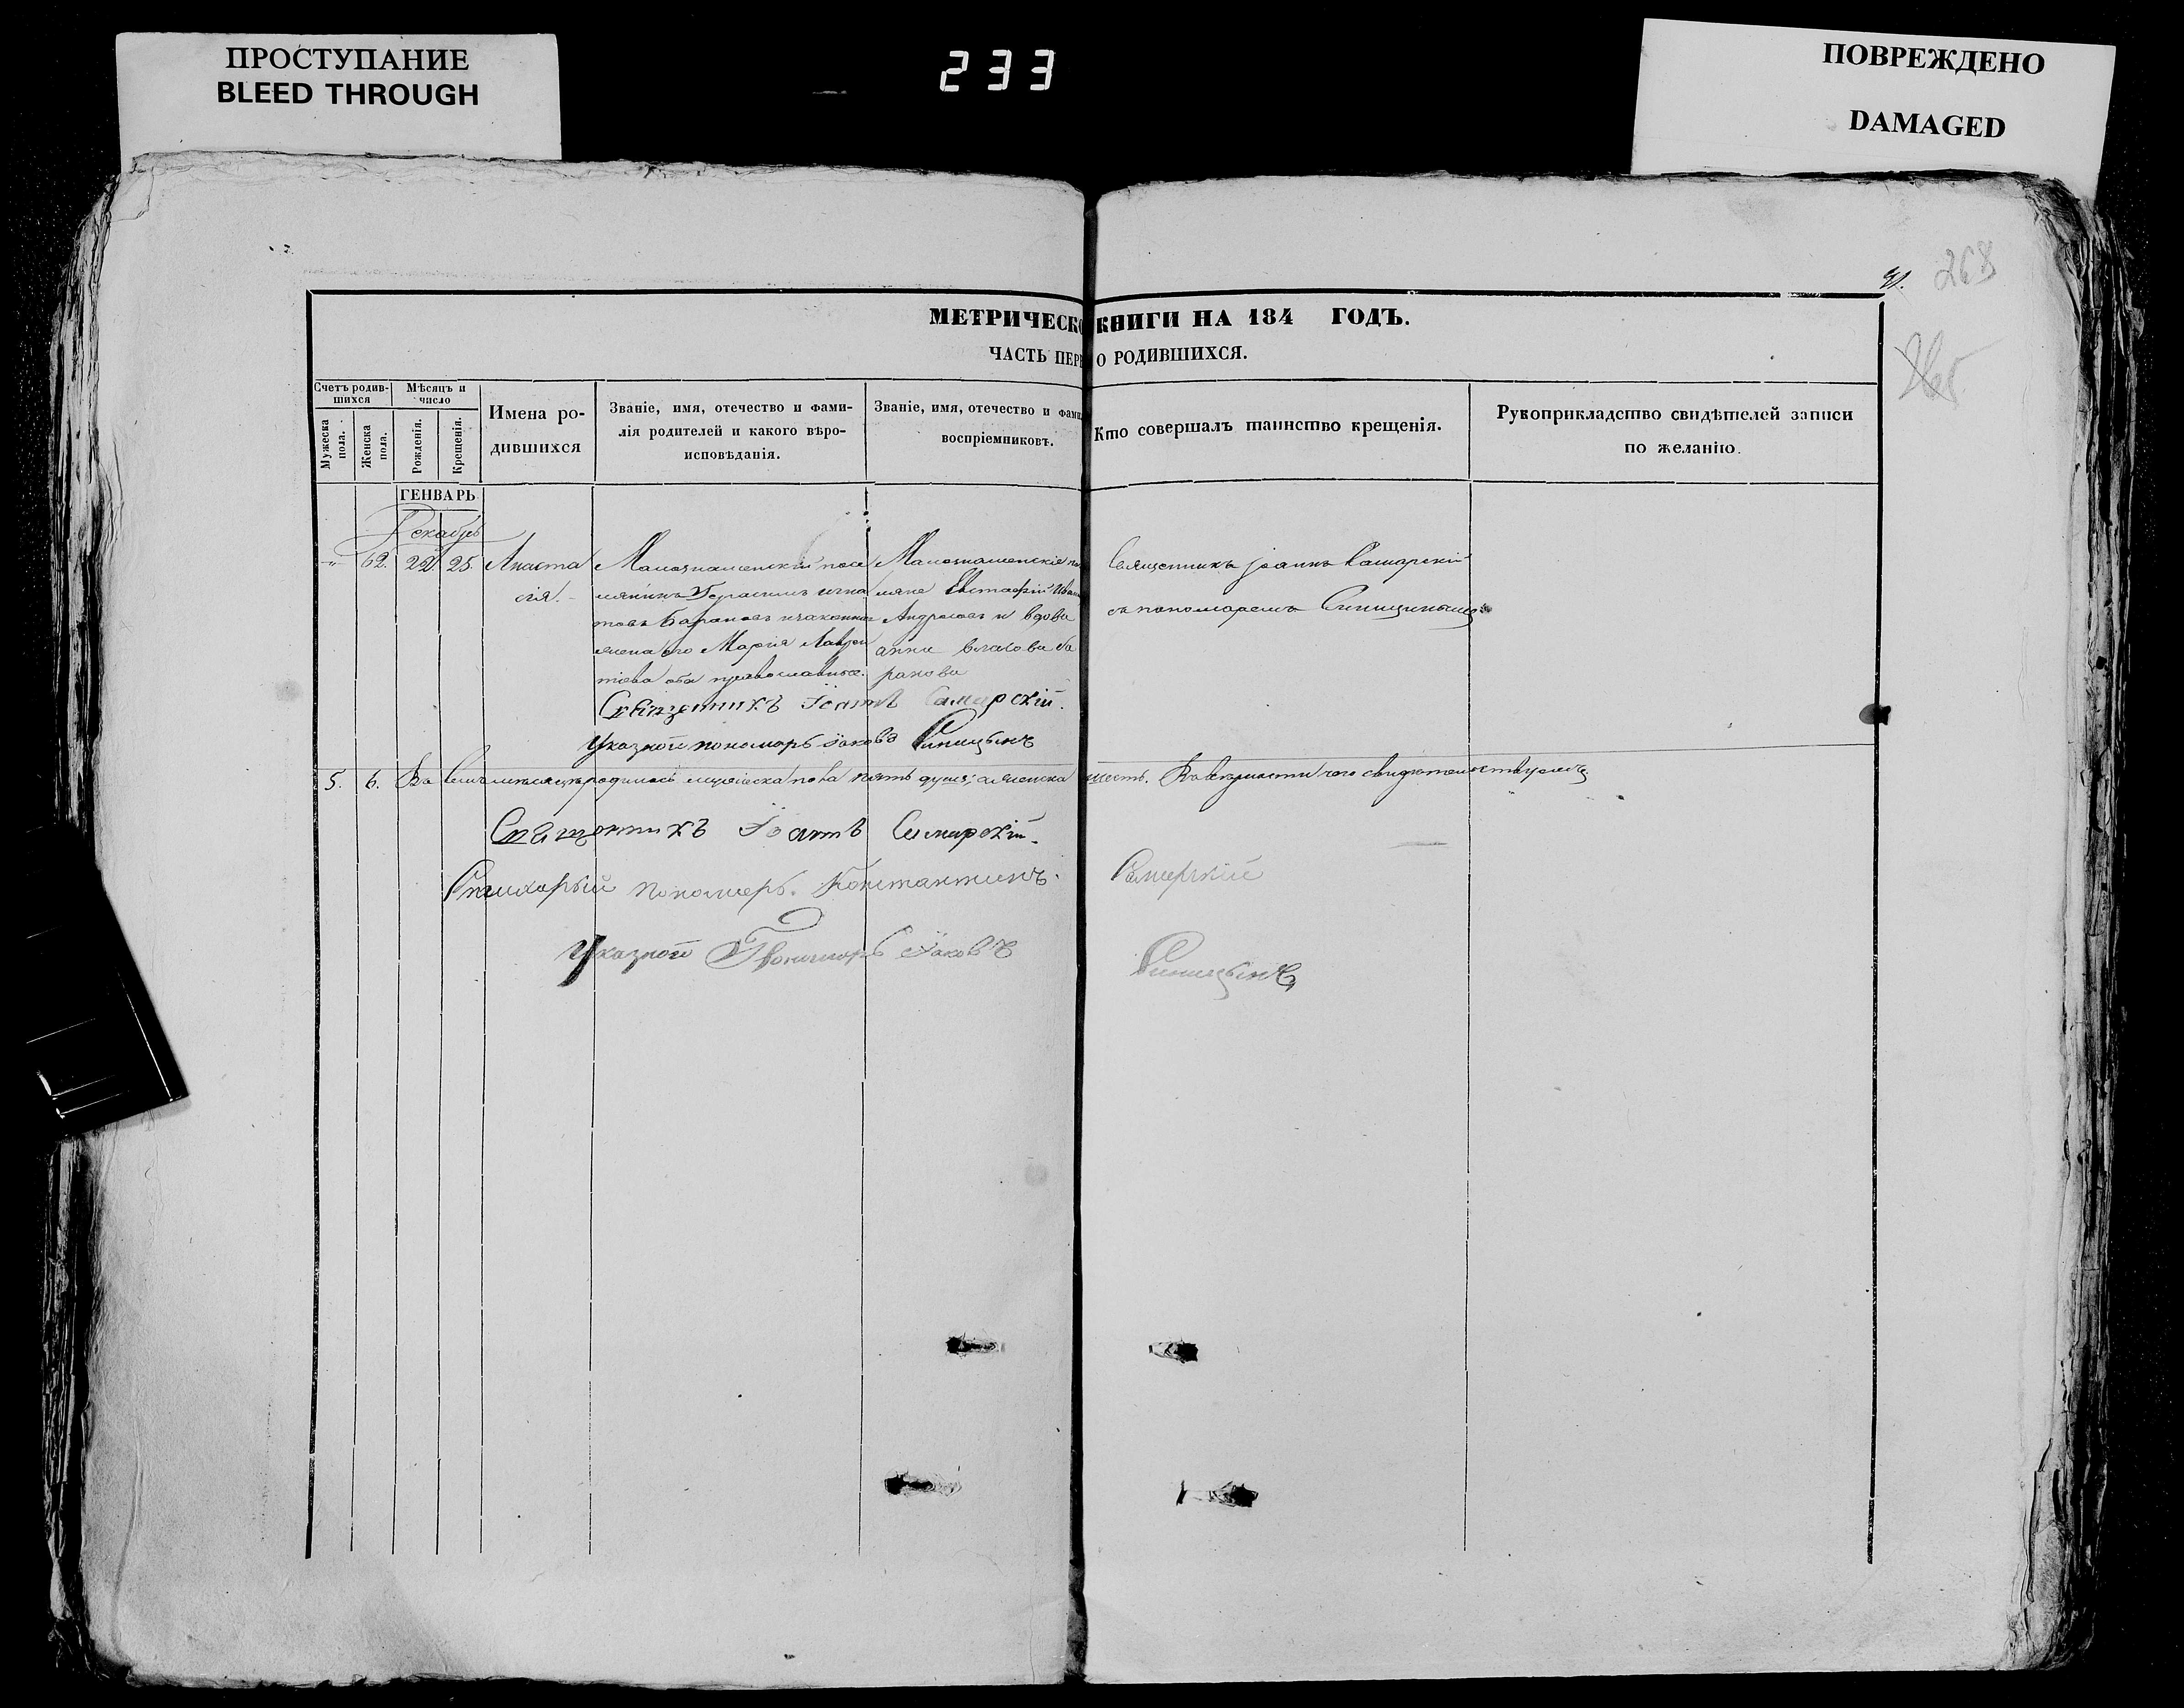 ПРОСТУПАНИЕ
BLEED THROUGH
233
ПОВРЕЖДЕНО
DAMAGED
268
МЕТРИЧЕСКО КНИГИ НА 184 ГОДЪ.
ЧАСТЬ ПЕР О РОДИВШИХСЯ.
Счетъ родив-
шихся
Мужеска
пола.
Женска
пола.
Мѣсяцъ и
число
Рожденія.
Крещенія.
Имена ро-
дившихся
Званіе, имя, отечество и фами-
лія родителей и какого вѣро-
исповѣданія.
Званіе, имя, отечество и фами
воспріемниковъ.
Кто совершалъ таинство крещенія.
Рукоприкладство свидѣтелей записи
по желанію.
ГЕНВАРЬ
Декабрь
" 62. 22 25.
Анаста
сія.
Малознаменскій посе
лянинъ Герасимъ Игна
товъ Барановъ и законная
жена его Марія Лаврен
тіева оба православные.
Малознаменскіе по
селяне Евстафій Иван
Андросовъ и вдова
Анна Власова Ба
ранова
Священникъ Іоаннъ Самарскій
съ пономаремъ Синицинымъ
Священникъ Іоаннъ Самарскій.
Указной пономарь Іаковъ Синицынъ
5. 6. Въ семъ месяцѣ родилось мужеска пола пять душъ; а женска шесть. Въ верности чего свидетельствуемъ
Священникъ Іоаннъ Самарскій.
Стихарый пономарь Константинъ Самарскій
Указной Пономарь Іаковъ Синицынъ